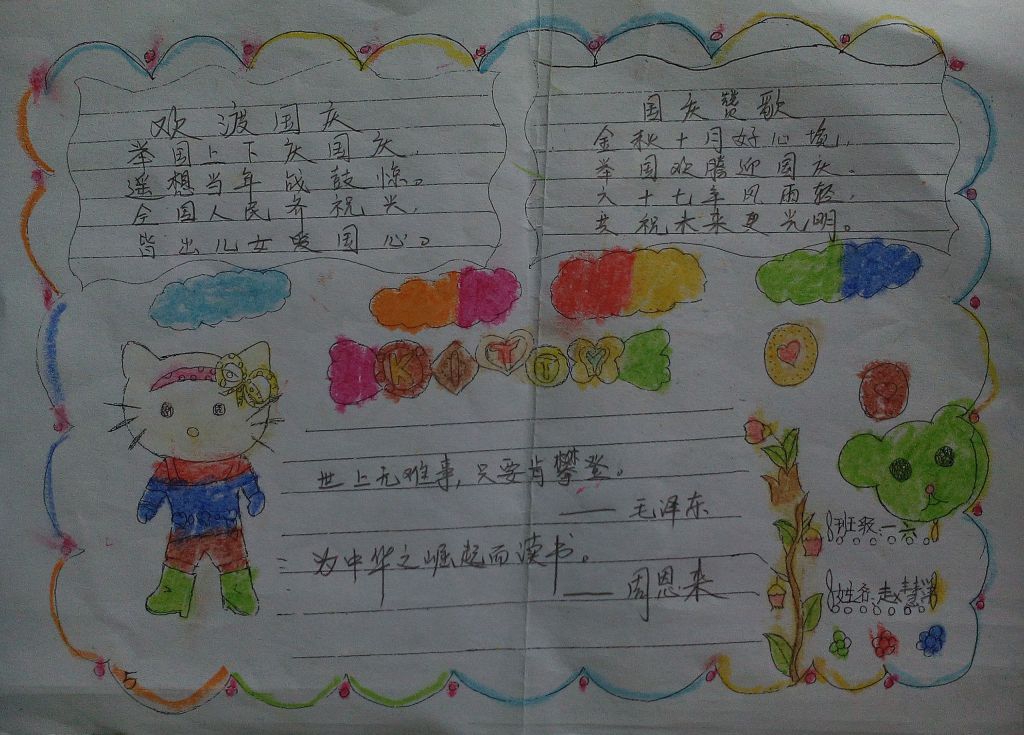 欢渡国庆
举国上下庆国庆，
遥想当年战鼓惊。
全国人民齐祝兴，
皆出儿女爱国心。
国庆赞歌
金秋十月好心境，
举国欢腾迎国庆．
六十七年风雨轻，
共祝未来更光明。
KITTY
世上无难事，只要肯攀登。
—— 毛泽东
为中华之崛起而读书。
—— 周恩来
班级：一六
姓名：赵
5